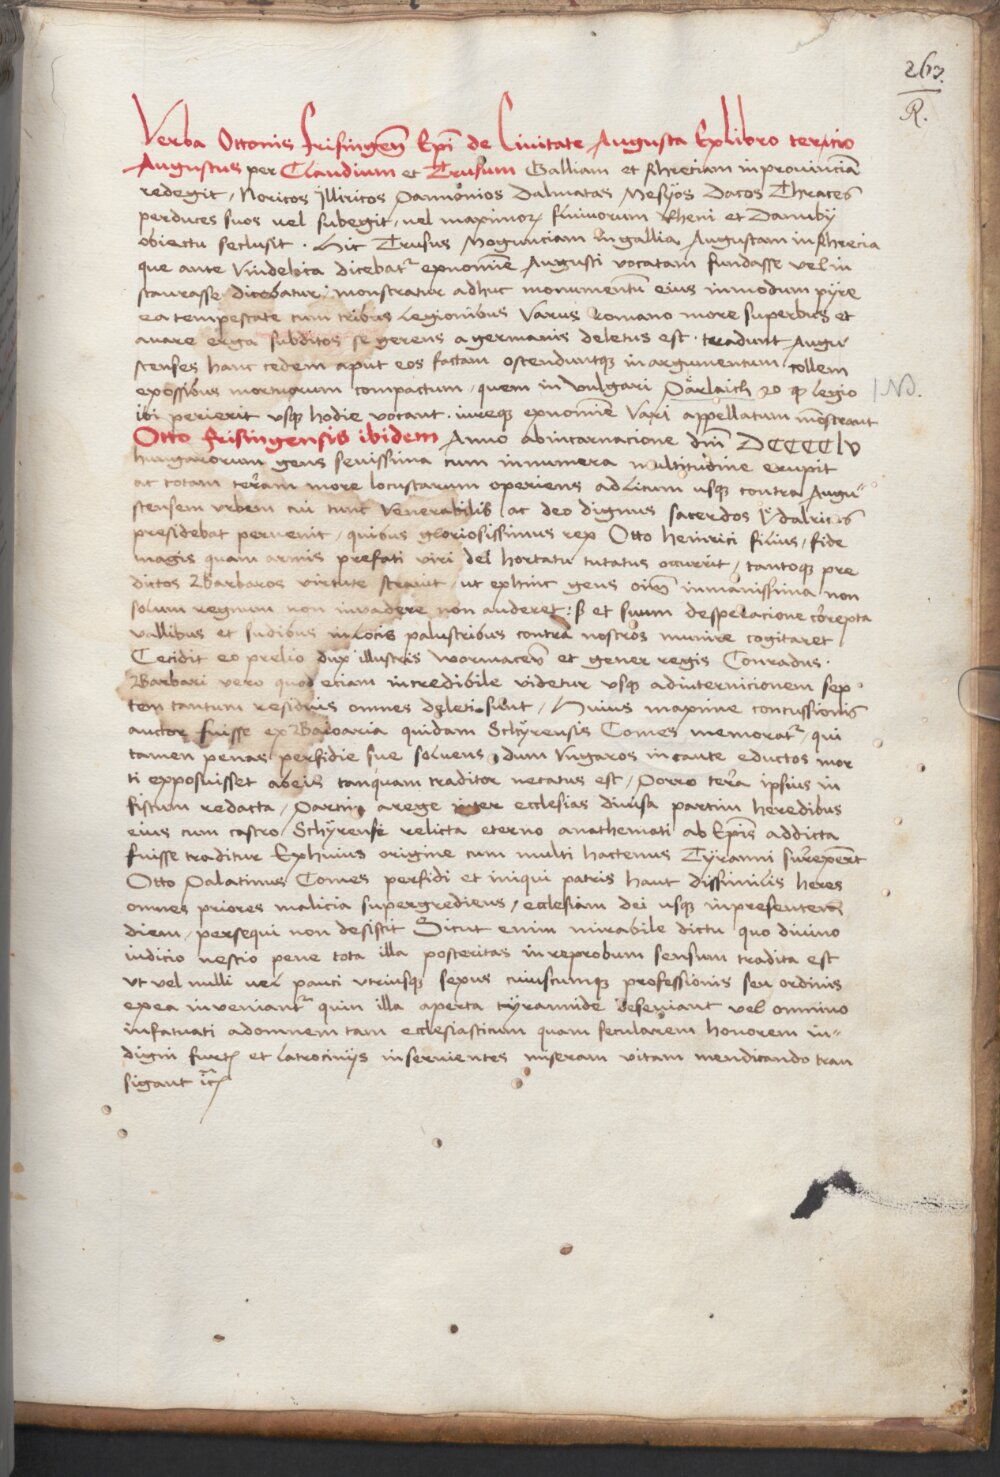 263.
R.
Verba Ottonis frisingen̄ Epī de Civitate Augusta Ex libro tercio
Augustus per Claudium et Trusum Galliam et Rhreciam in provinciā
redegit, Noricos Jlliricos Pannonios Dalmatas Mesijos Dacos Thraces
per duces suos vel subegit, vel maximorꝝ fluviorum Rheni et Danubÿ
obiectu seclusit. Hic Trusus Mogunciam in gallia, Augustam in Rhrecia
que ante Vindelica dicebatr̄ eponomīe Augusti vocatam fundasse vel in
staurasse dicebatur, monstratur adhuc monumentū eius in modum pyre
ea tempestate cum tribus legionibus Varus Romano more superbus et
avare erga subditos se gerens a germanis deletus est. tradunt Augu
stenses hanc cedem aput eos factam ostenduntqꝫ in argumentum, collem
ex ossibus mortuorum compactum, quem in vulgari Pärlaich eo ꝙ legio
ND.
ibi perierit usqꝫ hodie vocant. iureqꝫ eponomīe Vari appellatum mōstrant
Otto frisingensis ibidem Anno ab incarnacione dnī DCCCCLV
hungarorum gens sevissima cum innumera multitudine erupit
ac totam terram more locustarum operiens ad Licum usqꝫ contra Augu
stensem urbem cui tunc Venerabilis ac deo dignus sacerdos Udalricus
presidebat pervenit, quibus gloriosissimus rex Otto heinrici filius, fide
magis quam armis prefati viri dei hortatu tutatus occurrit, tantoqꝫ pre
dictos Barbaros virtute stravit, ut ex hinc gens oīm̄ inmanissima non
solum regnum non invadere non auderet: ꝭ et suum desperacione correpta
vallibus et sudibus in locis palustribus contra nostros munire cogitaret
Cecidit eo prelio dux illustris wormacen̄ et gener regis Conradus.
Barbari vero quod eciam incredibile videtur usqꝫ ad internicionem sep
tem tantum residuis omnes deleti sunt, Huius maxime concussionis
auctor fuisse ex Baioaria quidam Schyrensis Comes memoratr̄, qui
tamen penas perfidie sue solvens, dum Ungaros incaute eductos mor
ti exposuisset ab eis tanquam traditor necatus est, Porro terra ipsius in
fiscum redacta, Partim a rege inter ecclesias divisa partim heredibus
eius cum castro Schyrensi relicta eterno anathemati ab Epīs addicta
fuisse traditur Ex huius origine cum multi hactenus Tyranni surrexerīt
Otto Palatinus Comes perfidi et iniqui patris haut dissimilis heres
omnes priores malicia supergrediens, ecclesiam dei usqꝫ in presentem
diem, persequi non desistit Sicut enim mirabile dictu quo divino
iudicio nescio pene tota illa posteritas in reprobum sensum tradita est
ut vel nulli vel pauci utriusqꝫ sexus cuiuscumqꝫ professionis seu ordinis
ex ea inveniantr̄ quin illa aperta tyrannide deseviant vel omnino
infatuati ad omnem tam ecclesiasticum quam secularem honorem in-
digni furtꝭ et latrociniis inservientes miseram vitam mendicando tran
sigant